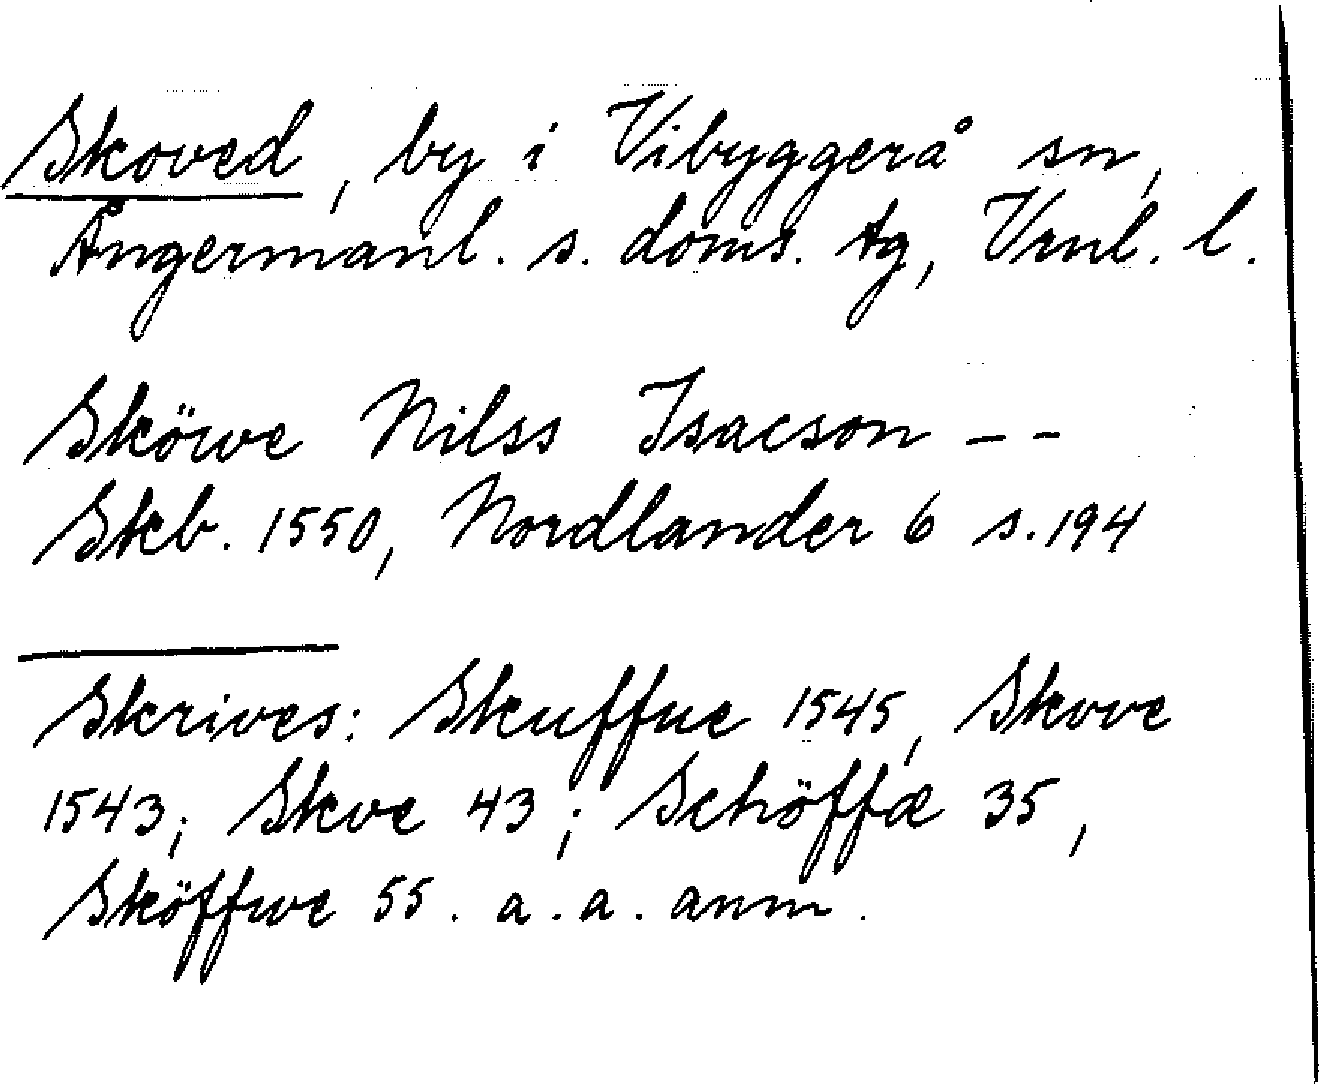 Skoved, by i Vibyggerå sn,
Ångermanl. s. doms. tg, Vrnl. l.
Sköwe Nilss Isacson – –
Skb. 1550, Nordlander 6 s. 194
Skrives: Skuffue 1545, Skove
1543; Skve 43; Schöffæ 35,
Sköffwe 55. a.a. anm.